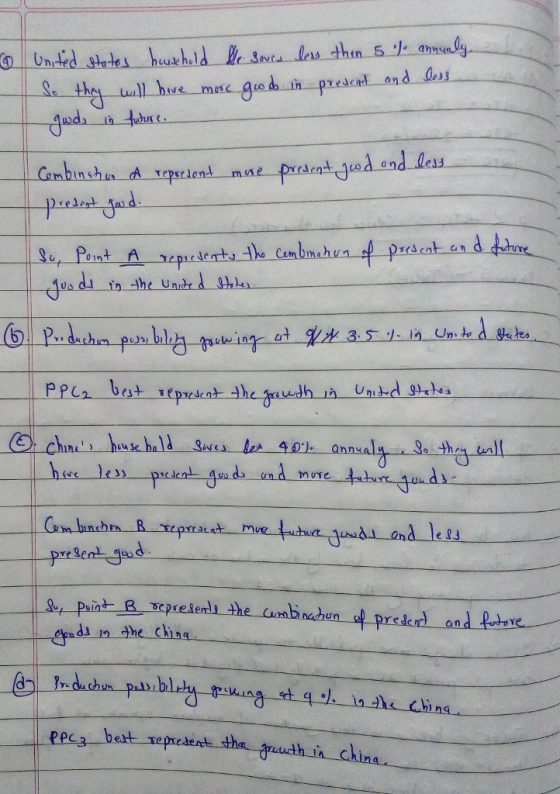 (a) United states household saves less then 5 % annualy.
So they will have more goods in present and less
goods in future.
Combination A represent more present good and less
present good.
So, Point A represents the combination of present and future
goods in the United States.
(b) Production possibility growing at 3.5 % in United States.
PPC2 best represent the growth in United States
(c) China's household saves 40% annualy. So they will
have less present goods and more future goods.
Combination B represent more future goods and less
present good.
So, point B represents the combination of present and future
goods in the China.
(d) Production possibility growing at 9 % in the China.
PPC3 best represent the growth in China.